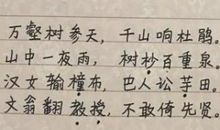 万壑树参天，千山响杜鹃。
山中一夜雨，树杪百重泉。
汉女输橦布，巴人讼芋田。
文翁翻教授，不敢倚先贤。